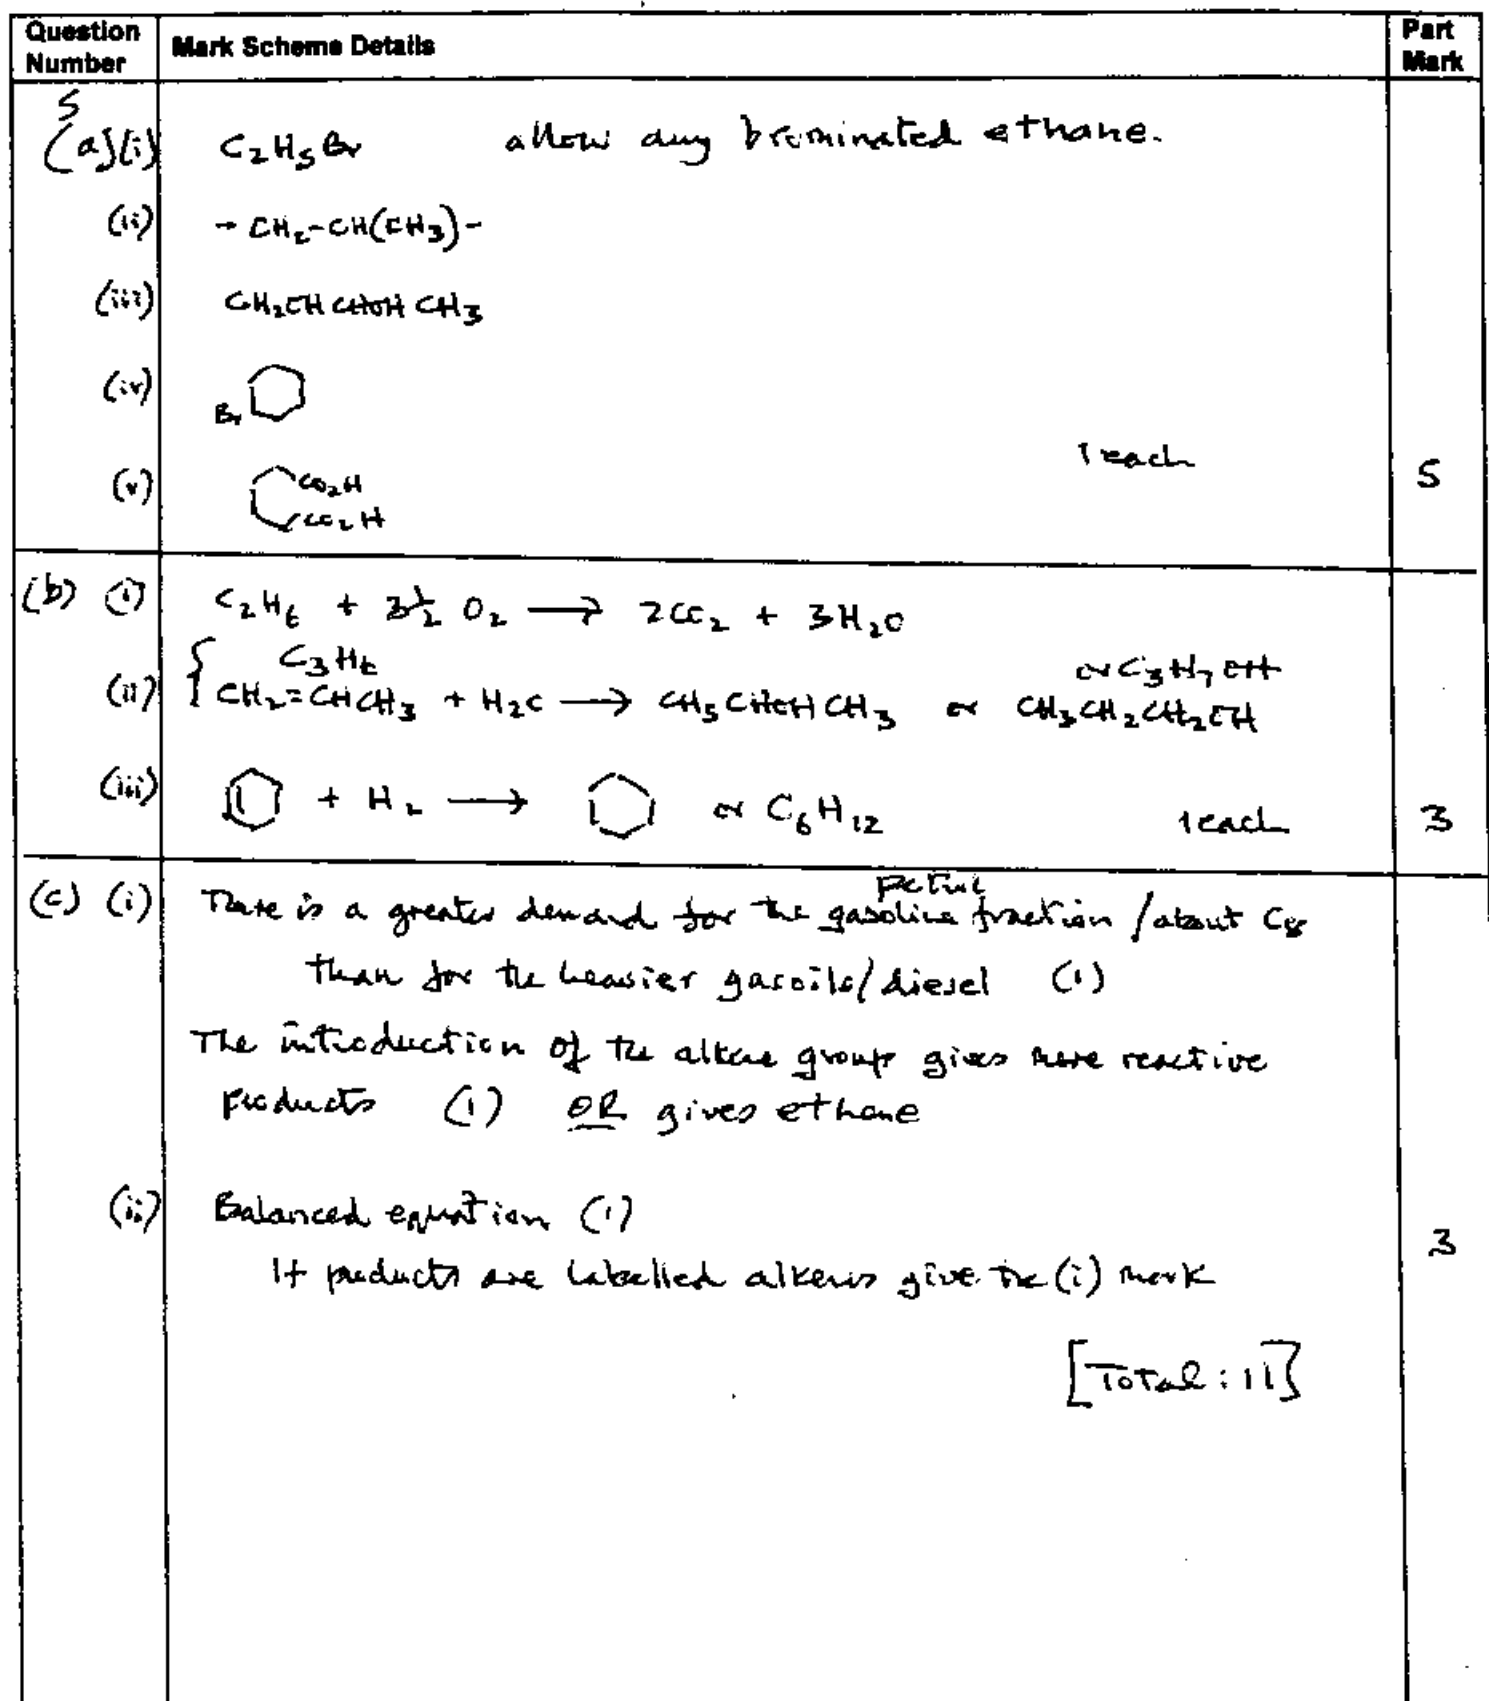 Question Number | Mark Scheme Details | Part Mark
5
(a)(i) C2H5Br allow any brominated ethane.
(ii) - CH2-CH(CH3)-
(iii) CH2OHCHOHCH3
(iv) Br
(v) CO2H
CO2H
1 each 5
(b) (i) C2H6 + 3½ O2 → 2CO2 + 3H2O
C3H6 or C3H7OH
(ii) { CH2=CHCH3 + H2O → CH3CHOHCH3 or CH3CH2CH2OH
(iii) + H2 → or C6H12 1 each 3
petrol
(c) (i) There is a greater demand for the gasoline fraction / about C8
than for the heavier gasoils/diesel (1)
The introduction of the alkene group gives more reactive
products (1) OR gives ethene
(ii) Balanced equation (1)
If products are labelled alkenes give the (i) mark
3
[Total : 11]